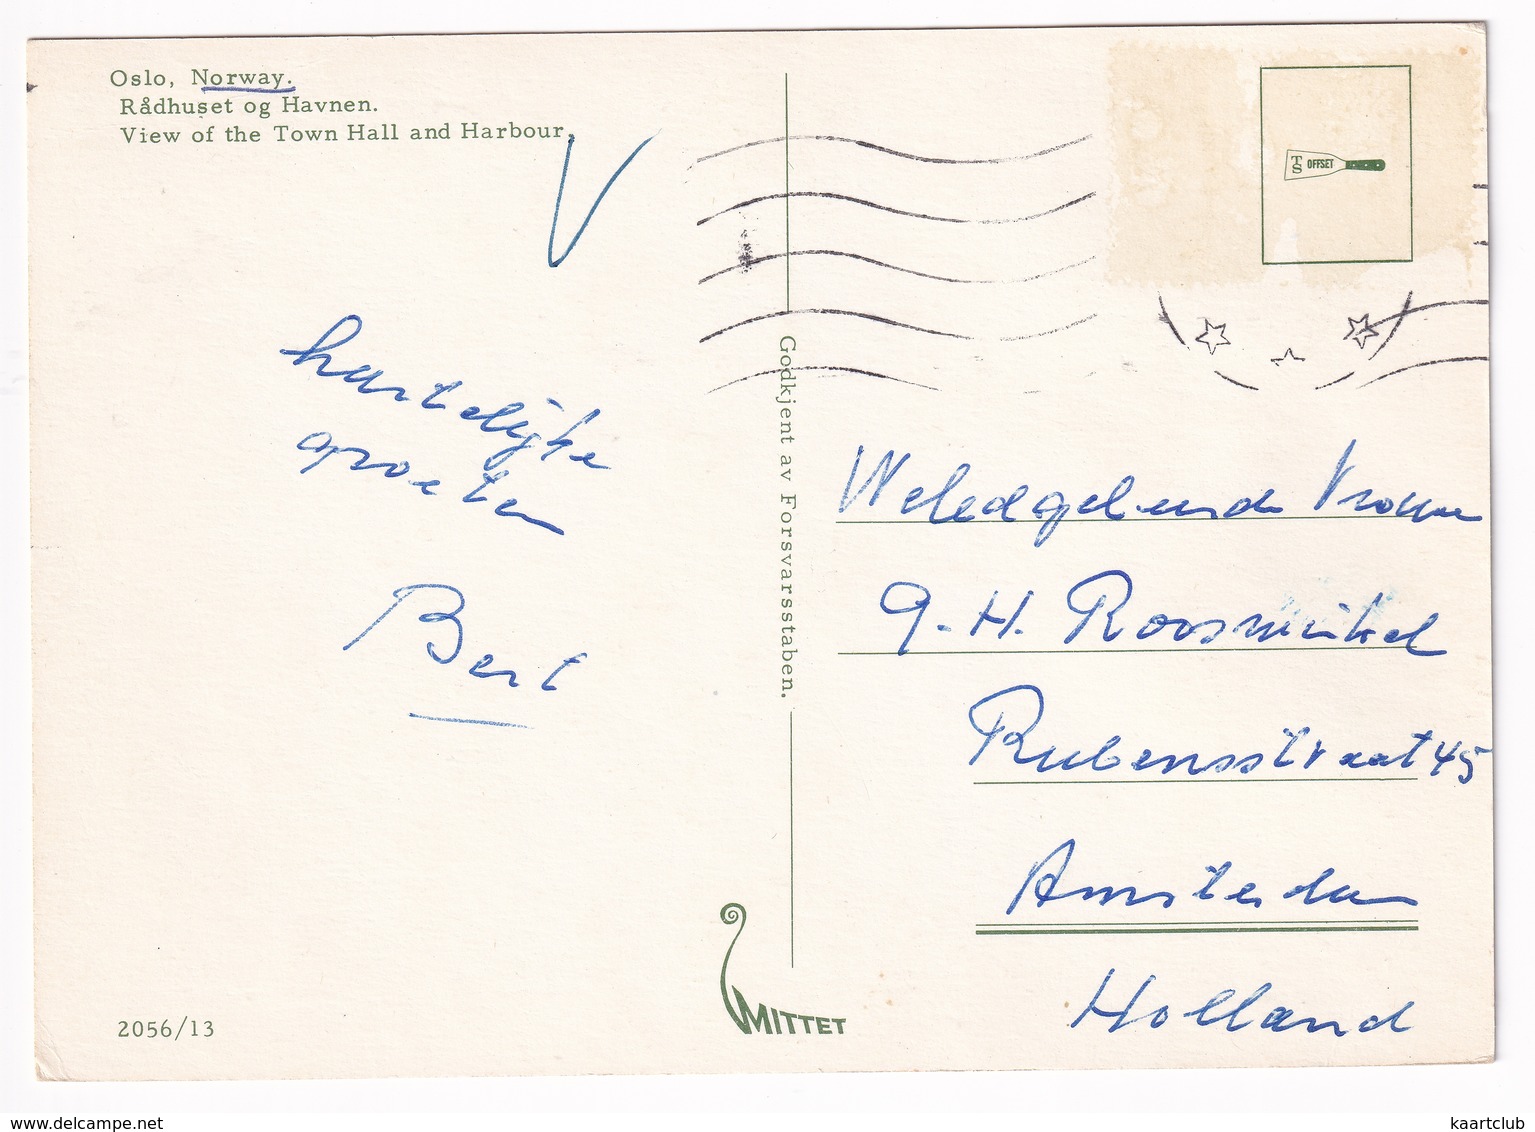 Oslo, Norway.
Rådhuset og Havnen.
View of the Town Hall and Harbour.
V
hartelijke
groeten
Bert
Godkjent av Forsvarsstaben.
TS OFFSET
Weledgeb
G.H. Rooswinkel
Rubensstraat 45
Amsterdam
Holland
2056/13
MITTET
www.delcampe.net
kaartclub